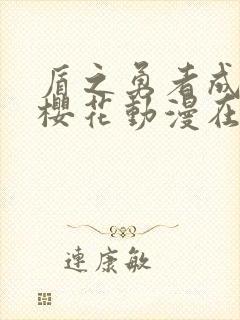 盾之勇者成
櫻花動漫在
連康敏